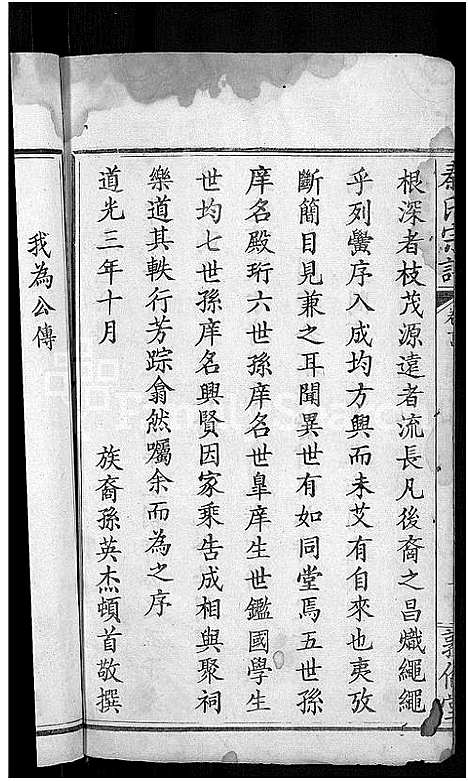 氏宗譜
卷首
根深者枝茂源遠者流長凡後裔之昌熾繩繩
乎列黌序入成均方興而未艾有自來也夷攷
斷簡目見兼之耳聞異世有如同堂焉五世孫
庠名殿珩六世孫庠名世臯庠生世鑑國學生
世均七世孫庠名興賢因家乘告成相與聚祠
樂道其軼行芳踪翕然囑余而為之序
道光三年十月　　族裔孫英杰頓首敬撰
我為公傳